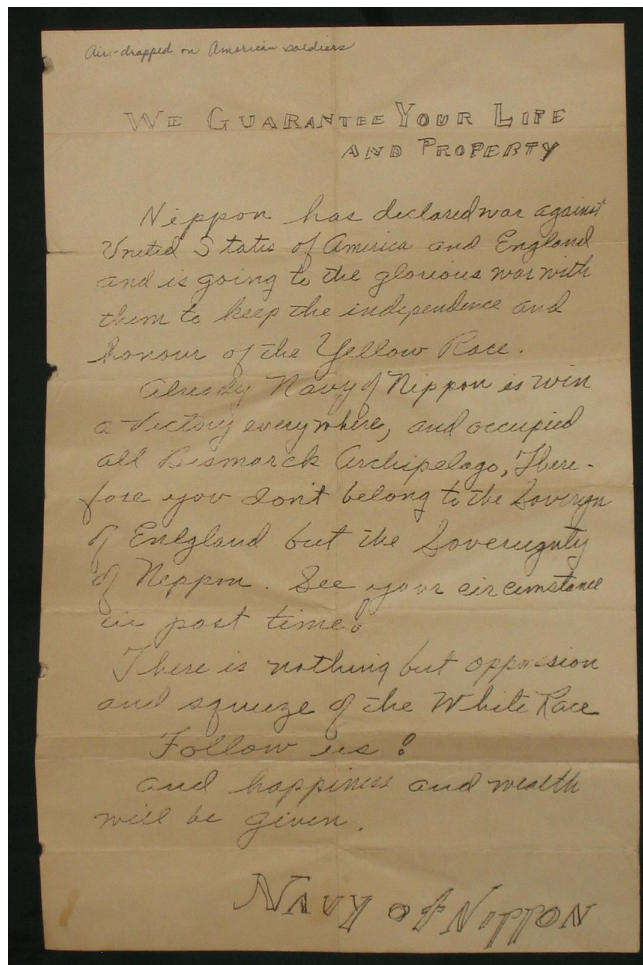 Air-dropped on American soldiers
WE GUARANTEE YOUR LIFE
AND PROPERTY
Nippon has declared war against
United States of America and England
and is going to the glorious war with
them to keep the independence and
honour of the Yellow Race.
Already Navy of Nippon is win
a victory everywhere, and occupied
all Bismarck Archipelago, There-
fore you don't belong to the
of England but the Sovereignty
of Nippon. See your circumstance
in past time!
There is nothing but oppression
and squeeze of the White Race
Follow us!
and happiness and wealth
will be given.
NAVY of NIPPON